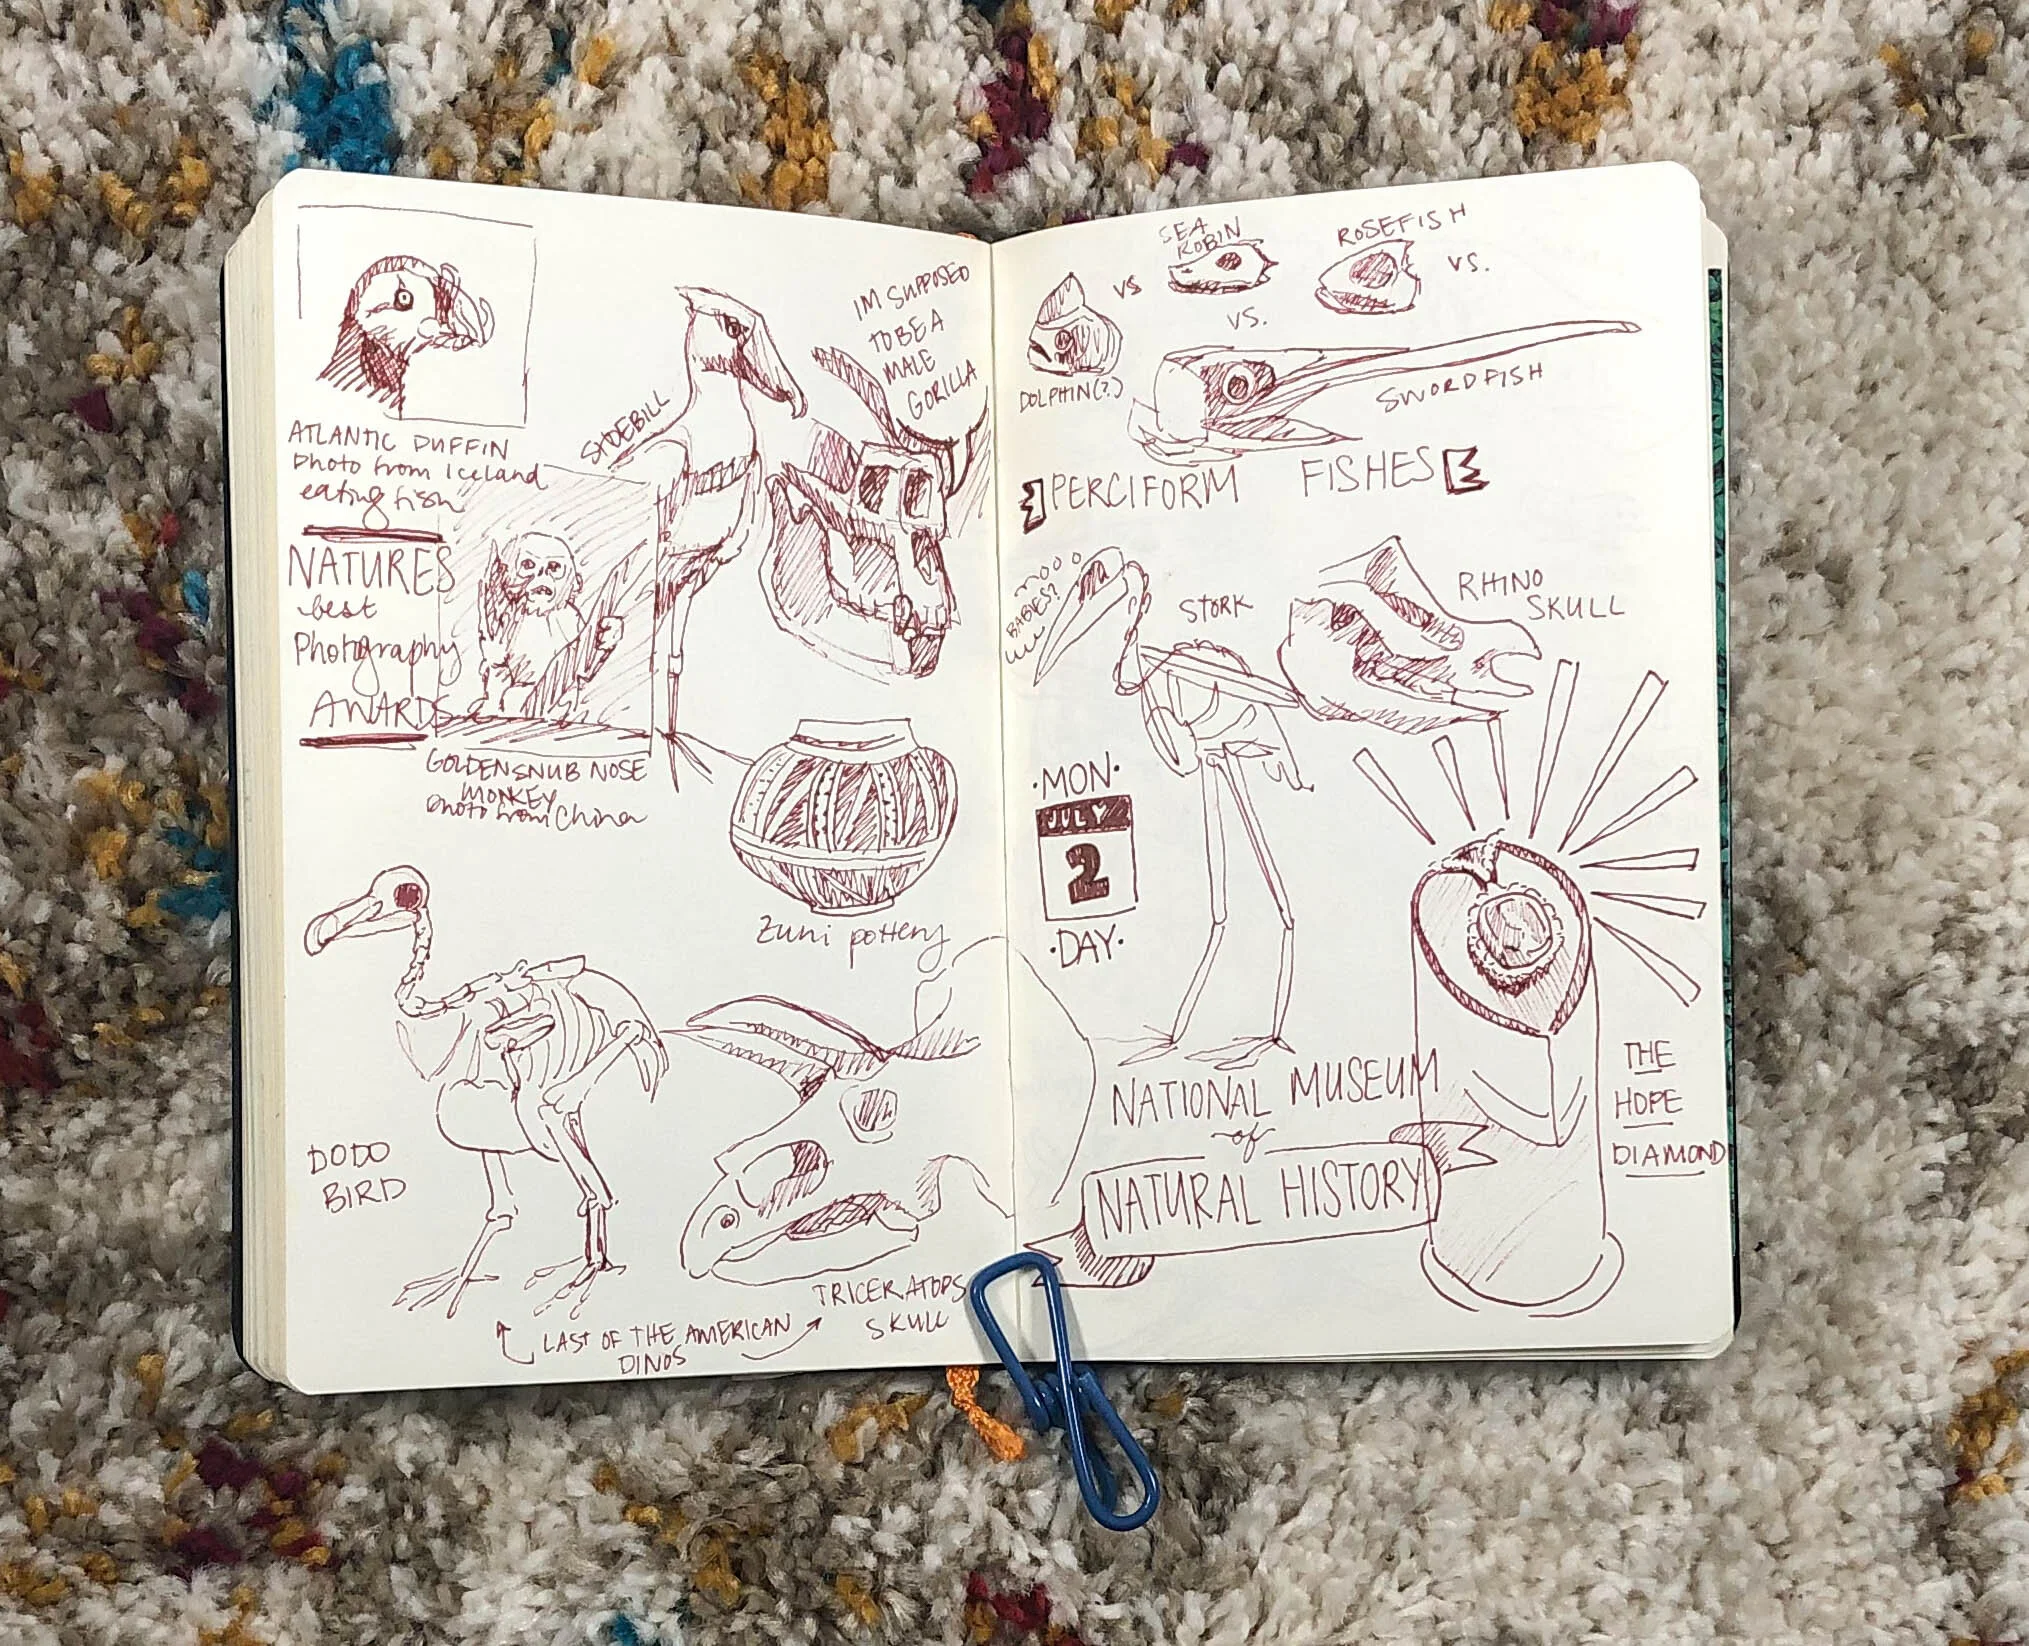 ATLANTIC PUFFIN
photo from Iceland
eating fish
NATURES
best
Photography
AWARDS
GOLDEN SNUB NOSE
MONKEY
photo from China
SHOEBILL
IM SUPPOSED
TO BE A
MALE
GORILLA
Zuni pottery
DODO
BIRD
LAST OF THE AMERICAN
DINOS
TRICERATOPS
SKULL
DOLPHIN(?)
VS
SEA
ROBIN
VS.
ROSEFISH
VS.
SWORDFISH
PERCIFORM FISHES
BABIES?
STORK
RHINO
SKULL
·MON·
JULY
2
·DAY·
NATIONAL MUSEUM
of
NATURAL HISTORY
THE
HOPE
DIAMOND